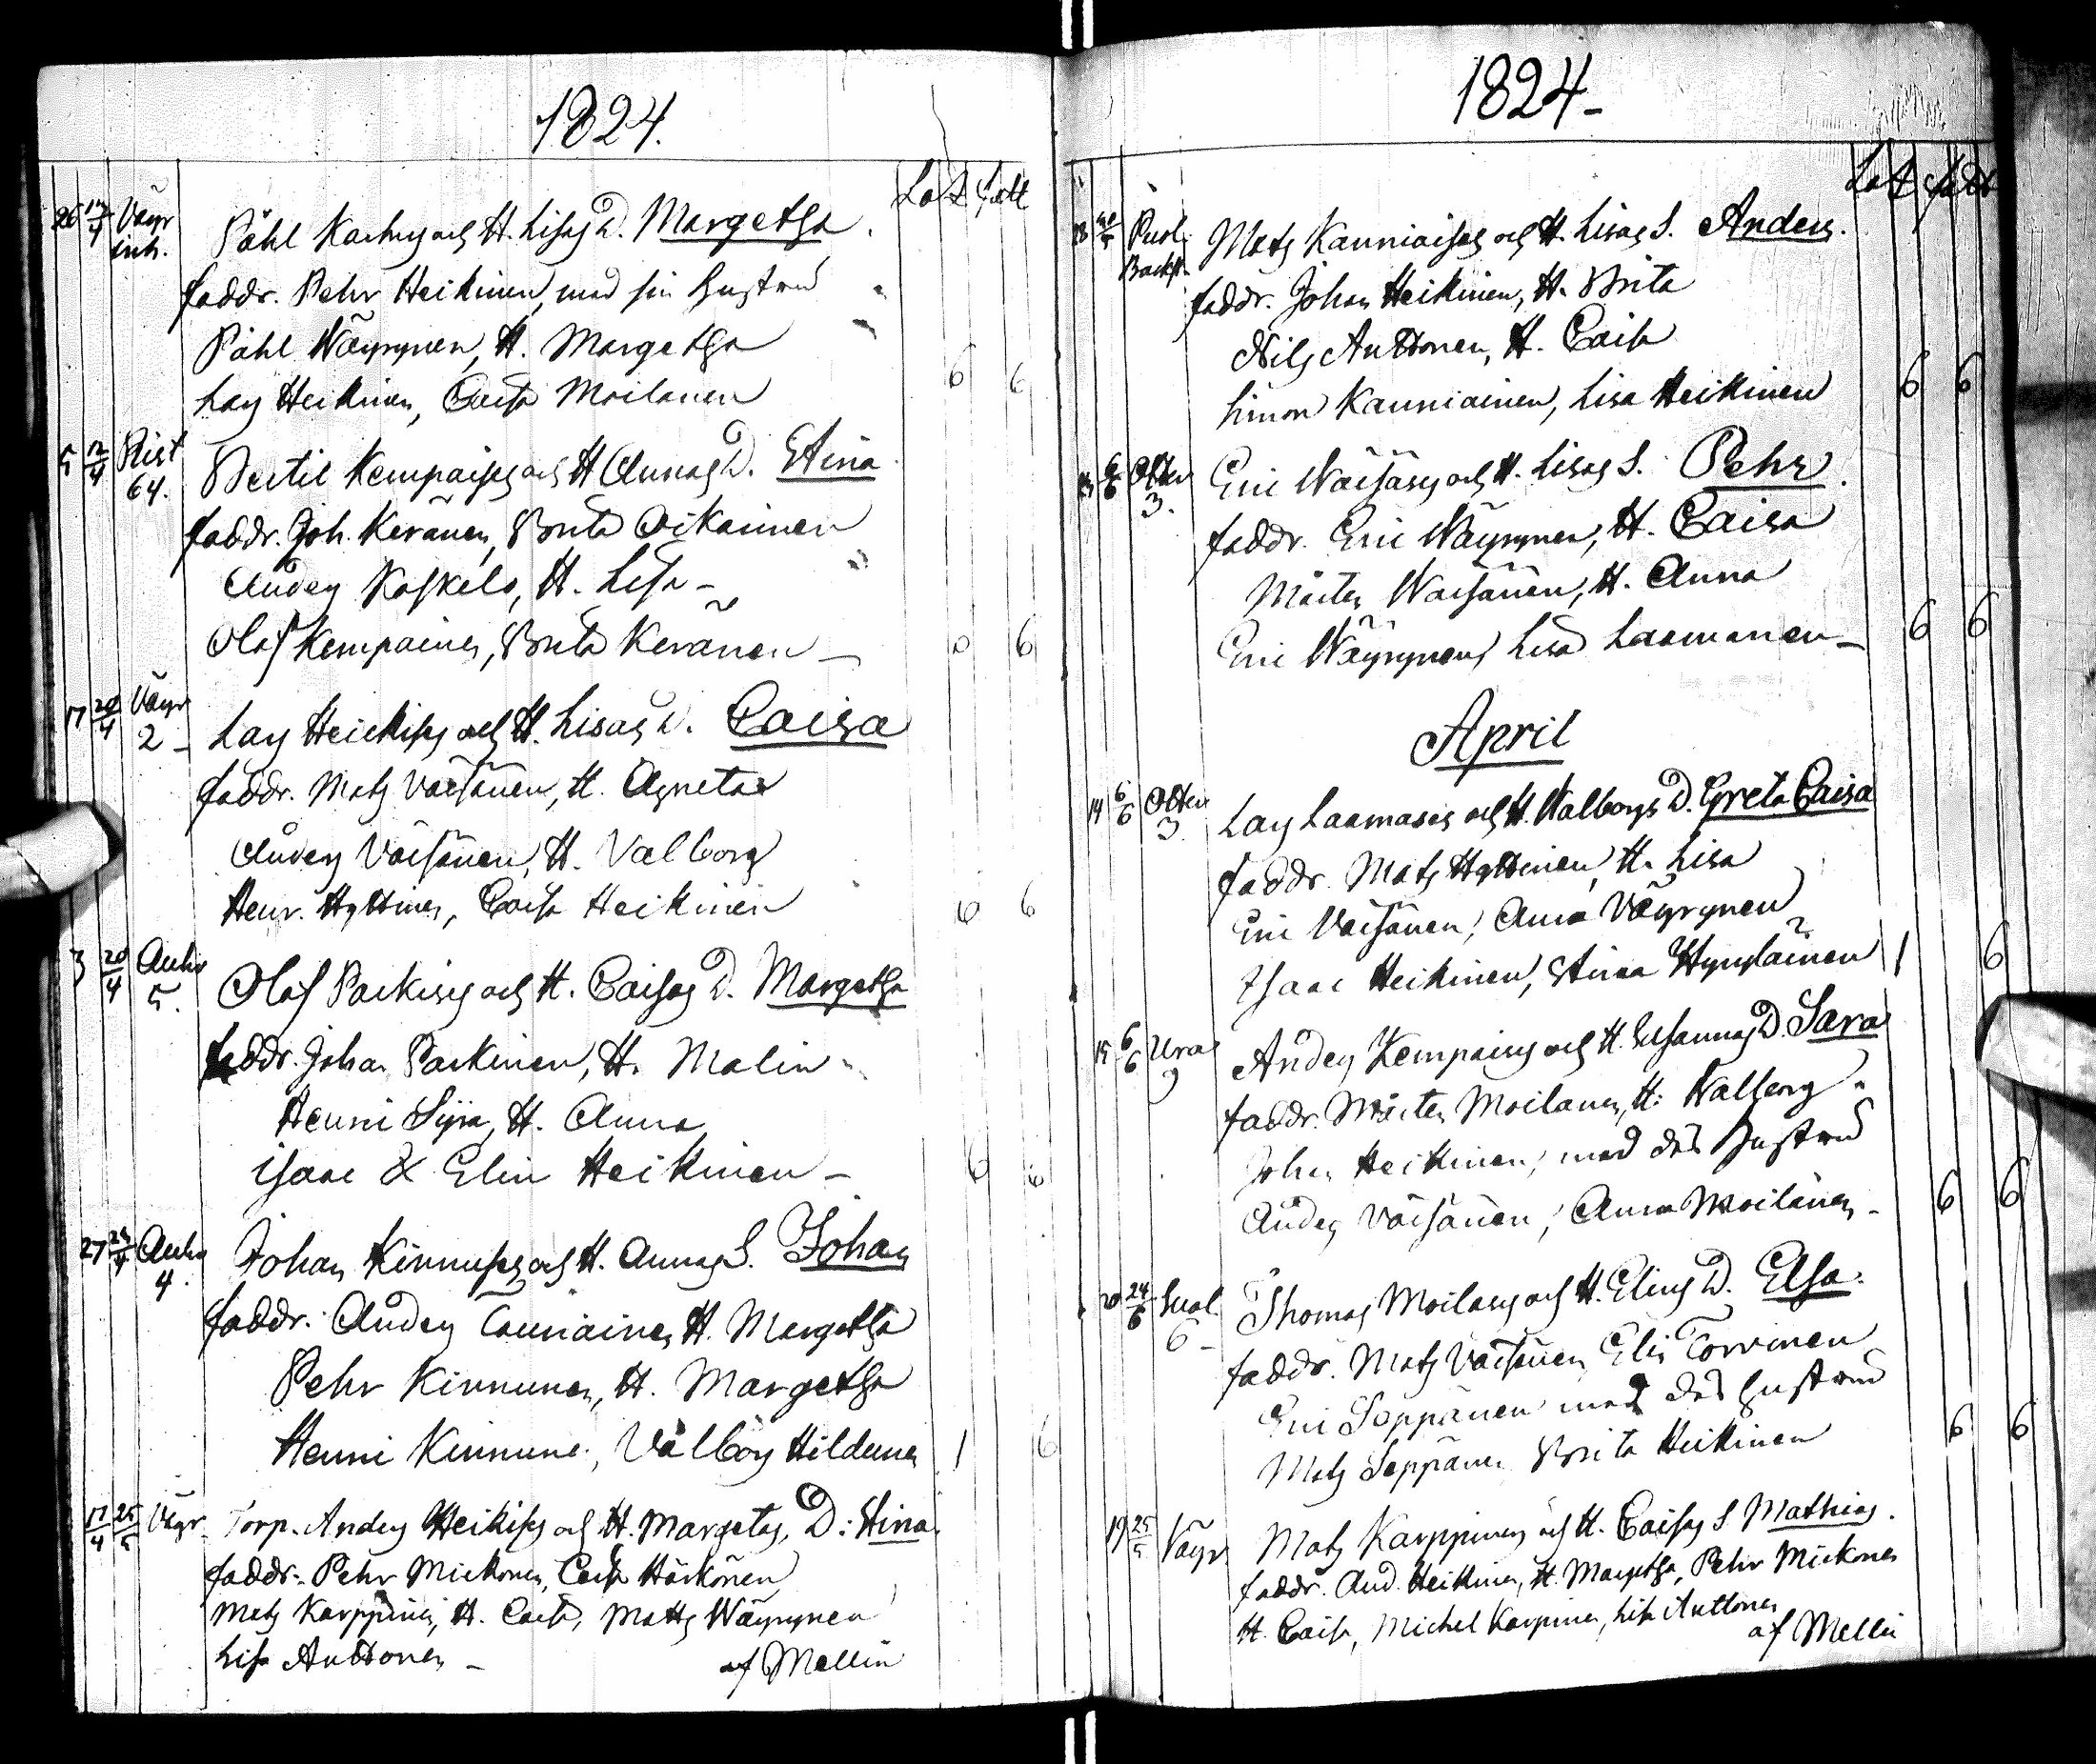 1824.
Lot fatt
26 12/4 Väyr inh. Påhl Kachns och H. Lisas D. Margetha.
faddr. Pehr Heikinen, med sin hustru
Påhl Wäyrynen, H. Margetha
Lars Heikinen, Caisa Moilanen 6 6
5 12/4 Rist 64. Bertil Kempaises och H Annas D. Stina.
faddr. Joh. Keränen, Brita Oikarinen
Anders Kaskelo, H. Lisa -
Olof Kempainen, Brita Keränen - 6
17 20/4 Väyr 2 - Lars Heickises och H. Lisas D. Caisa
faddr. Mats Väisänen, H. Agneta
Anders Väisänen, H. Valborg
Henr. Hyttinen, Caisa Heikinen 6 6
3 20/4 Auho 5. Olof Parkises och H. Caisas D. Margetha
faddr. Johan Parkinen, H. Malin
Henric Syra, H. Anna
Isaac & Elin Heikinen - 6 6
27 24/4 Auho 4. Johan Kinnuses och H. Annas S. Johan
faddr. Anders Cauniainen H. Margetha
Pehr Kinnunen, H. Margetha
Henric Kinnune, Valborg Hildunen 1 6
17/4 25/5 Väyr. Torp. Anders Heikises och H. Margetas, D: Stina.
faddr. Pehr Mickonen, Caisa Härkönen
Mats Karppinen, H. Caisa, Matts Wäyrynen
Lisa Anttonen - af Mellin
1824-
Lot fatt
Puol. Backst. Mats Kauniaises och H. Lisas S. Anders.
faddr. Johan Heikinen, H. Brita
Nils Anttonen, H. Caisa
Simon Kauniainen, Lisa Heikinen 6 6
3. Eric Wäisäses och H. Lisas S. Pehr.
faddr. Eric Wäyrynen, H. Caisa
Mårten Waisänen, H. Anna
Eric Wäyrynen, Lisa Laamanen - 6 6
April
14 6/6 3. Lars Laamases och H. Walborgs D. Greta Caisa
faddr. Mats Hyttinen, H. Lisa
Eric Väisänen, Anna Väyrynen
Isaac Heikinen, Stina Hynyläinen 1 6
15 6/6 Ura 9 Anders Kempaises och H. Susannas D. Sara
faddr. Mårten Moilanen, H. Walborg
Johan Heikinen, med dess hustru
Anders Väisänen, Anna Moilanen - 6 6
20 24/6 Suol. 6 - Thomas Moilases och H. Elins D. Elsa.
faddr. Mats Väisänen Elin Torvinen
Eric Seppänen med dess hustru
Mats Seppänen Brita Heikinen 6 6
19 25/5 Väyr Mats Karppinens och H. Caisas S Mathias.
faddr. And. Heikinen, H. Margetha, Pehr Mickonen
H. Caisa, Michel Karpinen, Lisa Anttonen
af Mellin